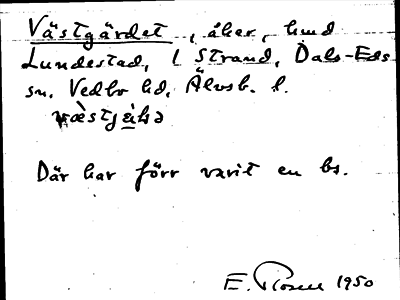 Västgärdet, åker, hmd
Lundestad, l Strand, Dals-Eds
sn. Vedbo hd, Älvsb. l.
Där har förr varit en bs.
E. Rosell 1950